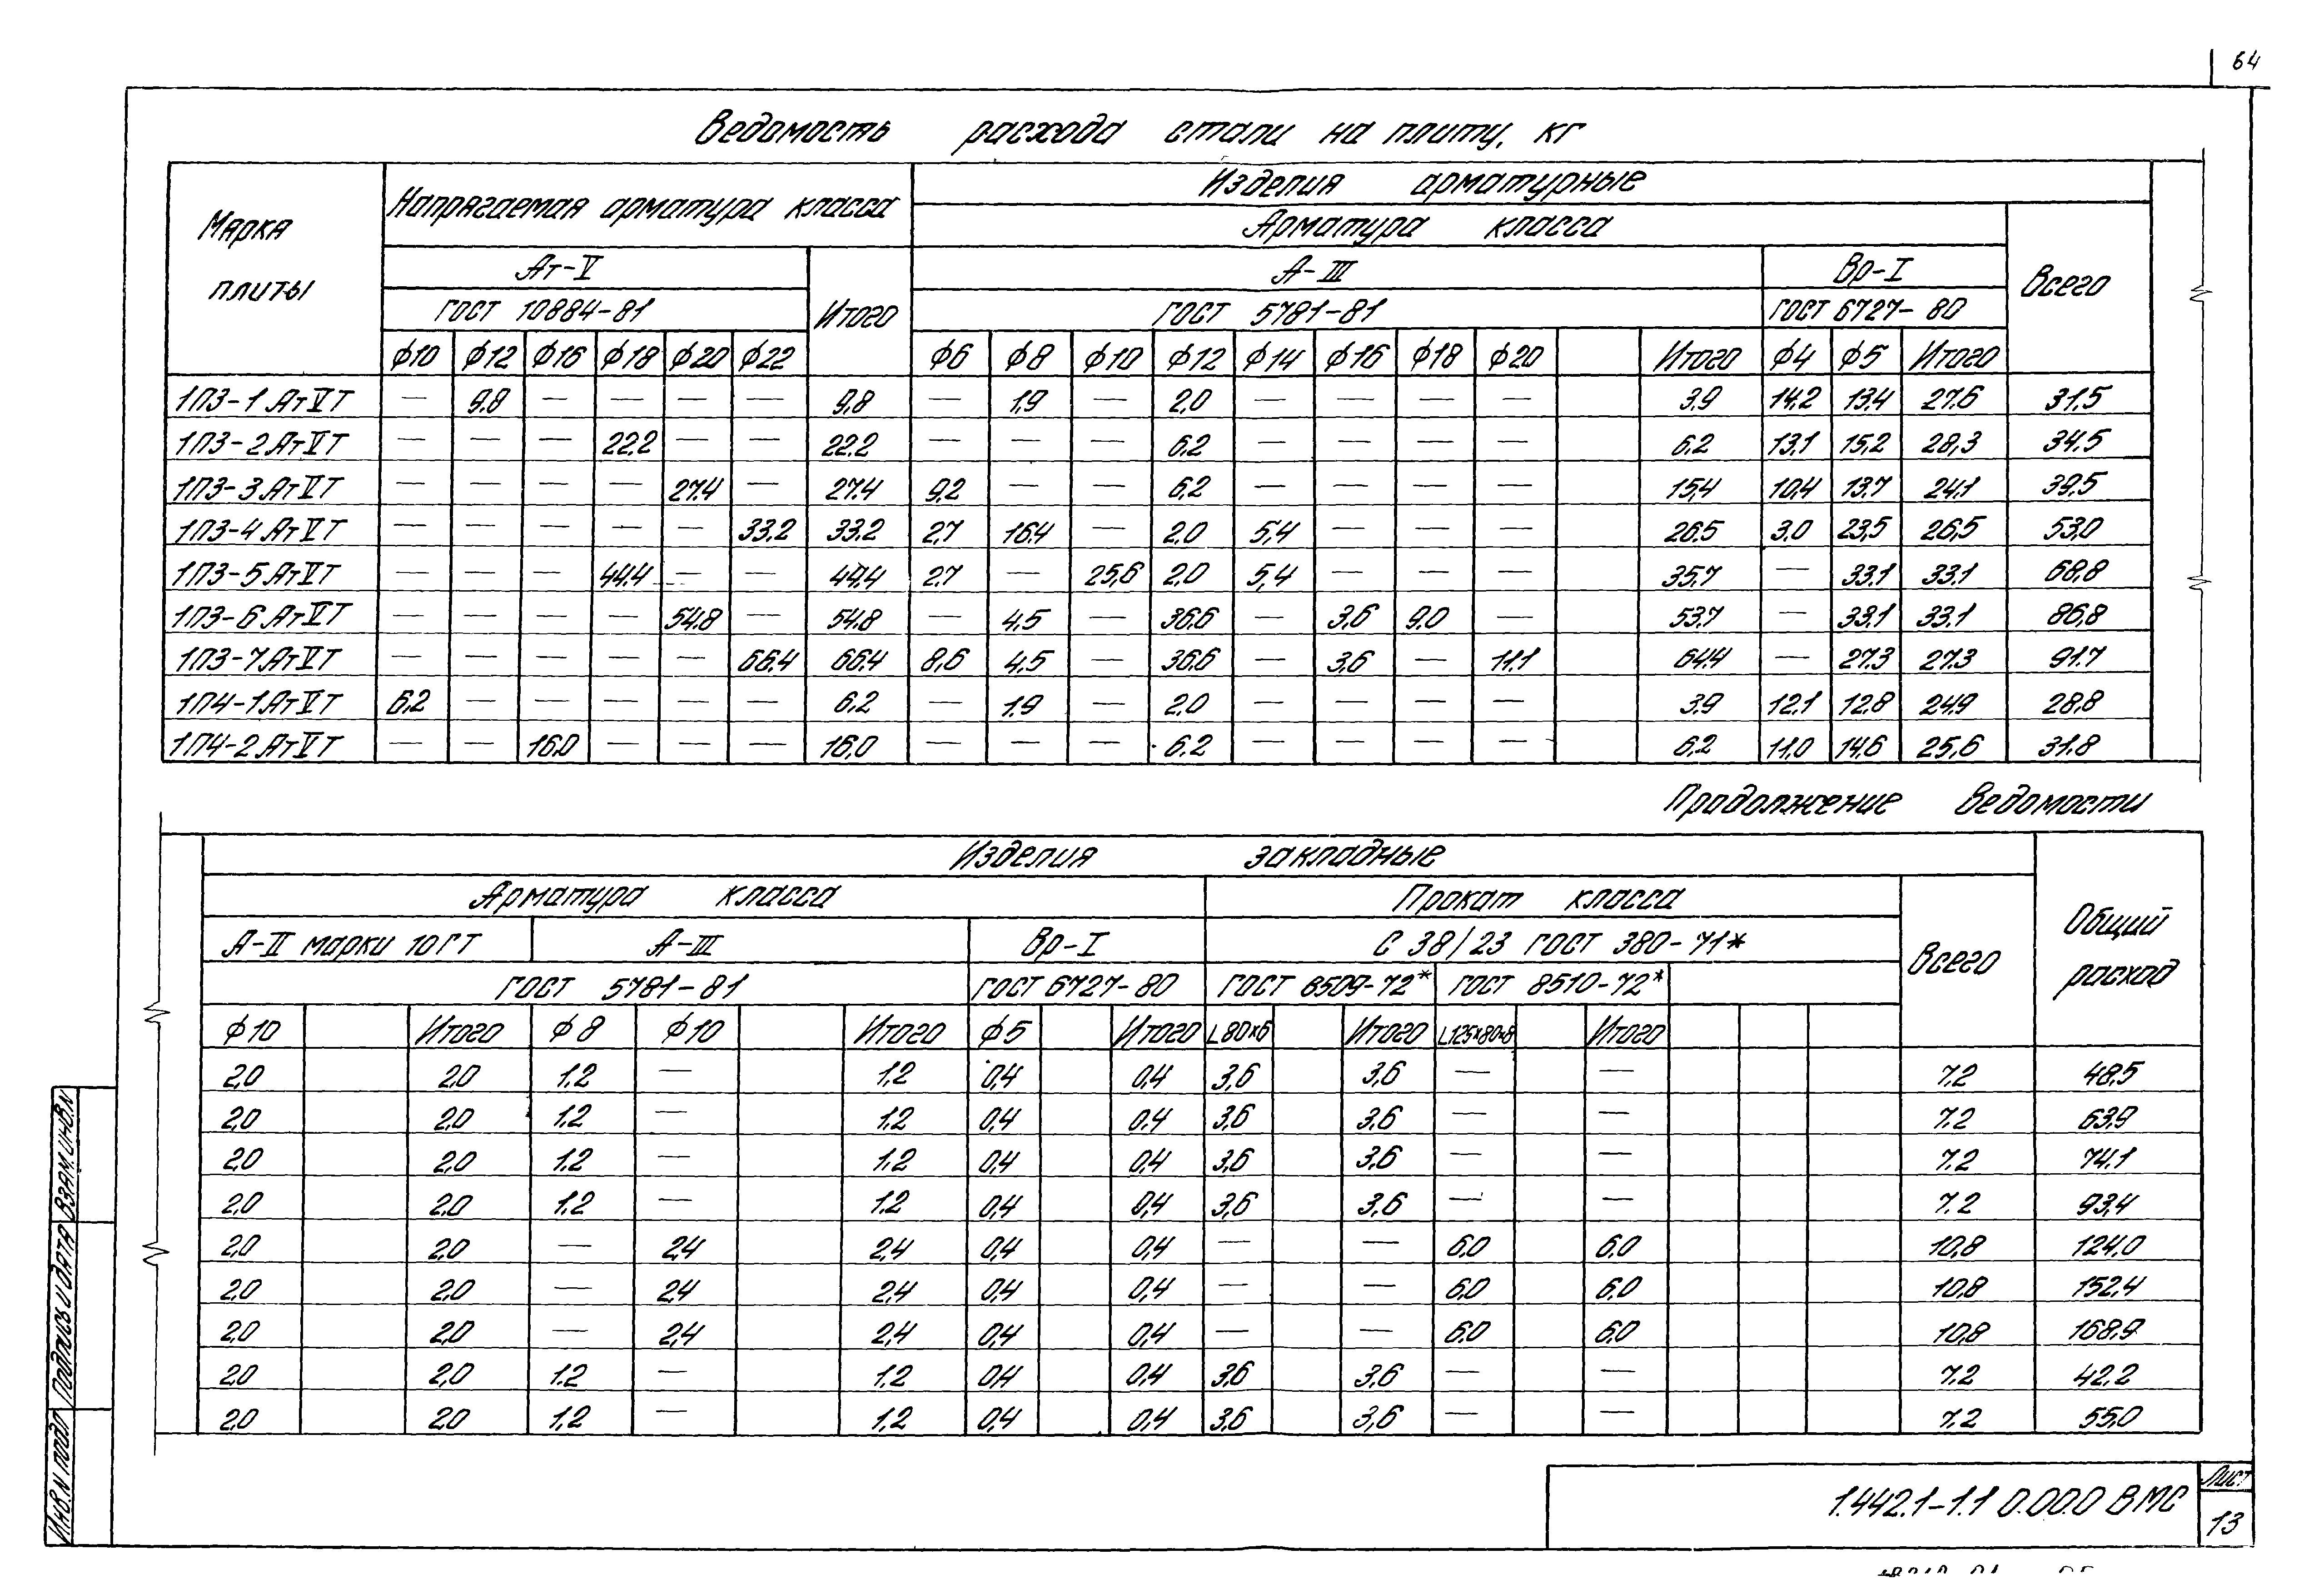 64
Ведомость расхода стали на плиту, кг
Марка плиты
Напрягаемая арматура класса
Изделия арматурные
Арматура класса
Ат-V
Итого
А-III
Вр-I
Всего
ГОСТ 10884-81
ГОСТ 5781-81
ГОСТ 6727-80
ф10 ф12 ф16 ф18 ф20 ф22 ф6 ф8 ф10 ф12 ф14 ф16 ф18 ф20 Итого ф4 ф5 Итого
1П3-1АтVТ — 9.8 — — — — 9,8 — 1,9 — 2,0 — — — — 3,9 14,2 13,4 27,6 31,5
1П3-2АтVТ — — — 22,2 — — 22,2 — — — 6,2 — — — — 6,2 13,1 15,2 28,3 34.5
1П3-3АтVТ — — — — 27.4 — 27.4 9,2 — — 6,2 — — — — 15,4 10,4 13,7 24,1 39,5
1П3-4АтVТ — — — — — 33,2 33,2 2,7 16,4 — 2,0 5,4 — — — 26.5 3,0 23,5 26,5 53,0
1П3-5АтVТ — — — 44.4 — — 44,4 2,7 — 25,6 2,0 5,4 — — — 35.7 — 33,1 33,1 68,8
1П3-6АтVТ — — — — 54,8 — 54,8 — 4,5 — 36,6 — 3,6 9,0 — 53,7 — 33,1 33,1 86,8
1П3-7АтVТ — — — — — 66,4 66,4 8,6 4,5 — 36,6 — 3,6 — 11,1 64,4 — 27,3 27,3 91,7
1П4-1АтVТ 6,2 — — — — — 6,2 — 1,9 — 2,0 — — — — 3,9 12,1 12,8 24,9 28,8
1П4-2АтVТ — — 16,0 — — — 16,0 — — — 6,2 — — — — 6,2 11,0 14,6 25,6 31,8
Продолжение ведомости
Изделия закладные
Общий расход
Арматура класса
Прокат класса
Всего
А-II марки 10ГТ
А-III
Вр-I
С 38/23 ГОСТ 380-71*
ГОСТ 5781-81
ГОСТ 6727-80
ГОСТ 8509-72*
ГОСТ 8510-72*
ф10 Итого ф8 ф10 Итого ф5 Итого L80x6 Итого L125x80x8 Итого
2,0 2,0 1,2 — 1,2 0,4 0,4 3,6 3,6 — — 7,2 48,5
2,0 2,0 1,2 — 1,2 0,4 0,4 3,6 3,6 — — 7,2 63,9
2,0 2,0 1,2 — 1,2 0,4 0,4 3,6 3,6 — — 7,2 74,1
2,0 2,0 1,2 — 1,2 0,4 0,4 3,6 3,6 — — 7,2 93,4
2,0 2,0 — 2,4 2,4 0,4 0,4 — — 6,0 6,0 10,8 124,0
2,0 2,0 — 2,4 2,4 0,4 0,4 — — 6,0 6,0 10,8 152,4
2,0 2,0 — 2,4 2,4 0,4 0,4 — — 6,0 6,0 10,8 168,9
2,0 2,0 1,2 — 1,2 0,4 0,4 3,6 3,6 — — 7,2 42,2
2,0 2,0 1,2 — 1,2 0,4 0,4 3,6 3,6 — — 7,2 55,0
Инв.N подл
Подпись и дата
Взам.инв.N
1.442.1-1.1 0.00.0 ВМС
Лист
13